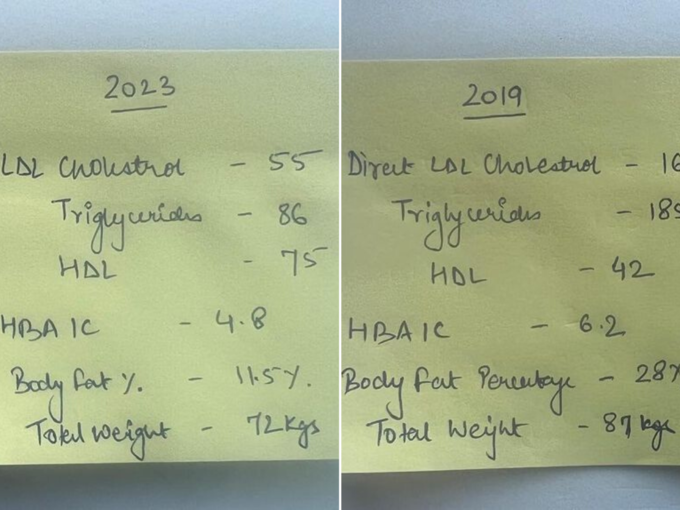 2023
LDL Cholestrol - 55
Triglycerides - 86
HDL - 75
HBA1C - 4.8
Body fat %. - 11.5%.
Total weight - 72 kgs
2019
Direct LDL Cholestrol - 16
Triglycerides - 185
HDL - 42
HBA1C - 6.2
Body fat Percentage - 28%
Total Weight - 87 kgs